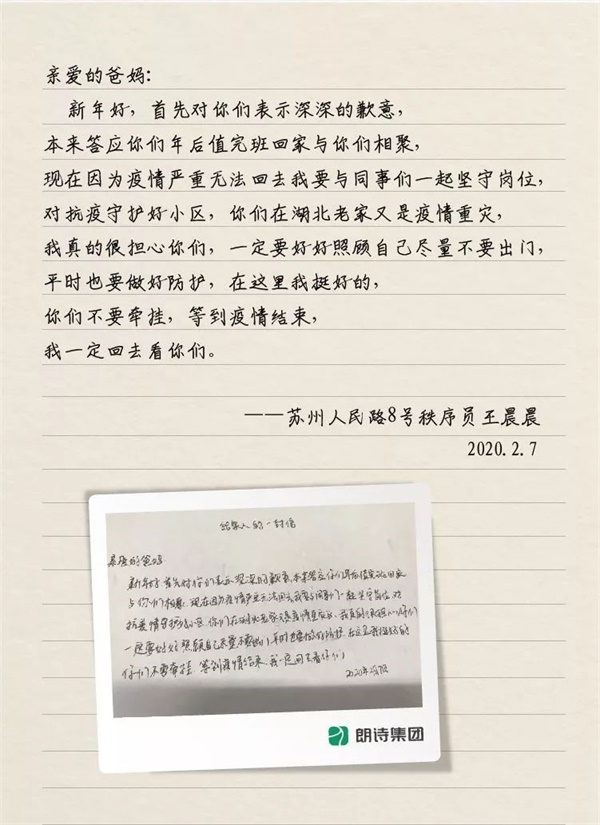 亲爱的爸妈：
新年好，首先对你们表示深深的歉意，
本来答应你们年后值完班回家与你们相聚，
现在因为疫情严重无法回去我要与同事们一起坚守岗位，
对抗疫守护好小区，你们在湖北老家又是疫情重灾，
我真的很担心你们，一定要好好照顾自己尽量不要出门，
平时也要做好防护，在这里我挺好的，
你们不要牵挂，等到疫情结束，
我一定回去看你们。
——苏州人民路8号秩序员王晨晨
2020.2.7
给家人的一封信
亲爱的爸妈
新年好 首先对你们表示深深的歉意，本来答应你们年后值完班回家
与你们相聚，现在因为疫情严重无法回去我要与同事们一起坚守岗位 对
抗疫情守护好小区，你们在湖北老家又是疫情重灾，我真的很担心你们
一定要好好照顾自己尽量不要出门，平时也要做好防护，在这里我挺好的
你们不要牵挂，等到疫情结束，我一定回去看你们
朗诗集团